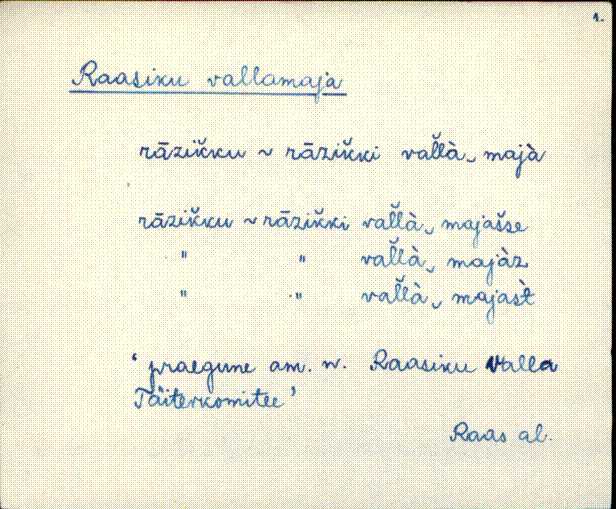 1.
Raasiku vallamaja
rāzik̆ku ~ rāzik̆ki val̆là‿majà
rāzik̆ku ~ rāzik̆ki val̆là‿majas̆se
" " val̆là‿majàz
" " val̆là‿majas̀t
‘praegune am. n. Raasiku Valla
Täiterkomitee’
Raas al.